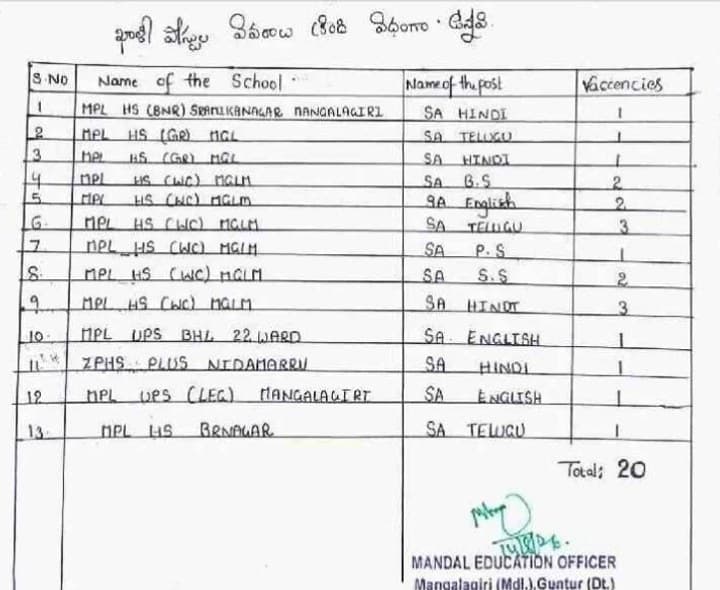 ఖాళీ పోస్టుల వివరాలు క్రింది విధంగా ఉన్నవి.
S.NO Name of the School Name of the post Vaccencies
1 MPL HS (BNR) SRAMIKANAGAR MANGALAGIRI SA HINDI 1
2 MPL HS (GR) MGL SA TELUGU 1
3 MPL HS (GR) MGL SA HINDI 1
4 MPL HS (WC) MGLM SA B.S 2
5 MPL HS (WC) MGLM SA English 2
6. MPL HS (WC) MGLM SA TELUGU 3
7. MPL HS (WC) MGLM SA P.S 1
8. MPL HS (WC) MGLM SA S.S 2
9 MPL HS (WC) MGLM SA HINDI 3
10. MPL UPS BHL 22 WARD SA. ENGLISH 1
11 ZPHS PLUS NIDAMARRU SA HINDI 1
12 MPL UPS (LEG) MANGALAGIRI SA ENGLISH 1
13. MPL HS BRNAGAR SA TELUGU 1
Total: 20
MANDAL EDUCATION OFFICER
Mangalagiri (Mdl.), Guntur (Dt.)